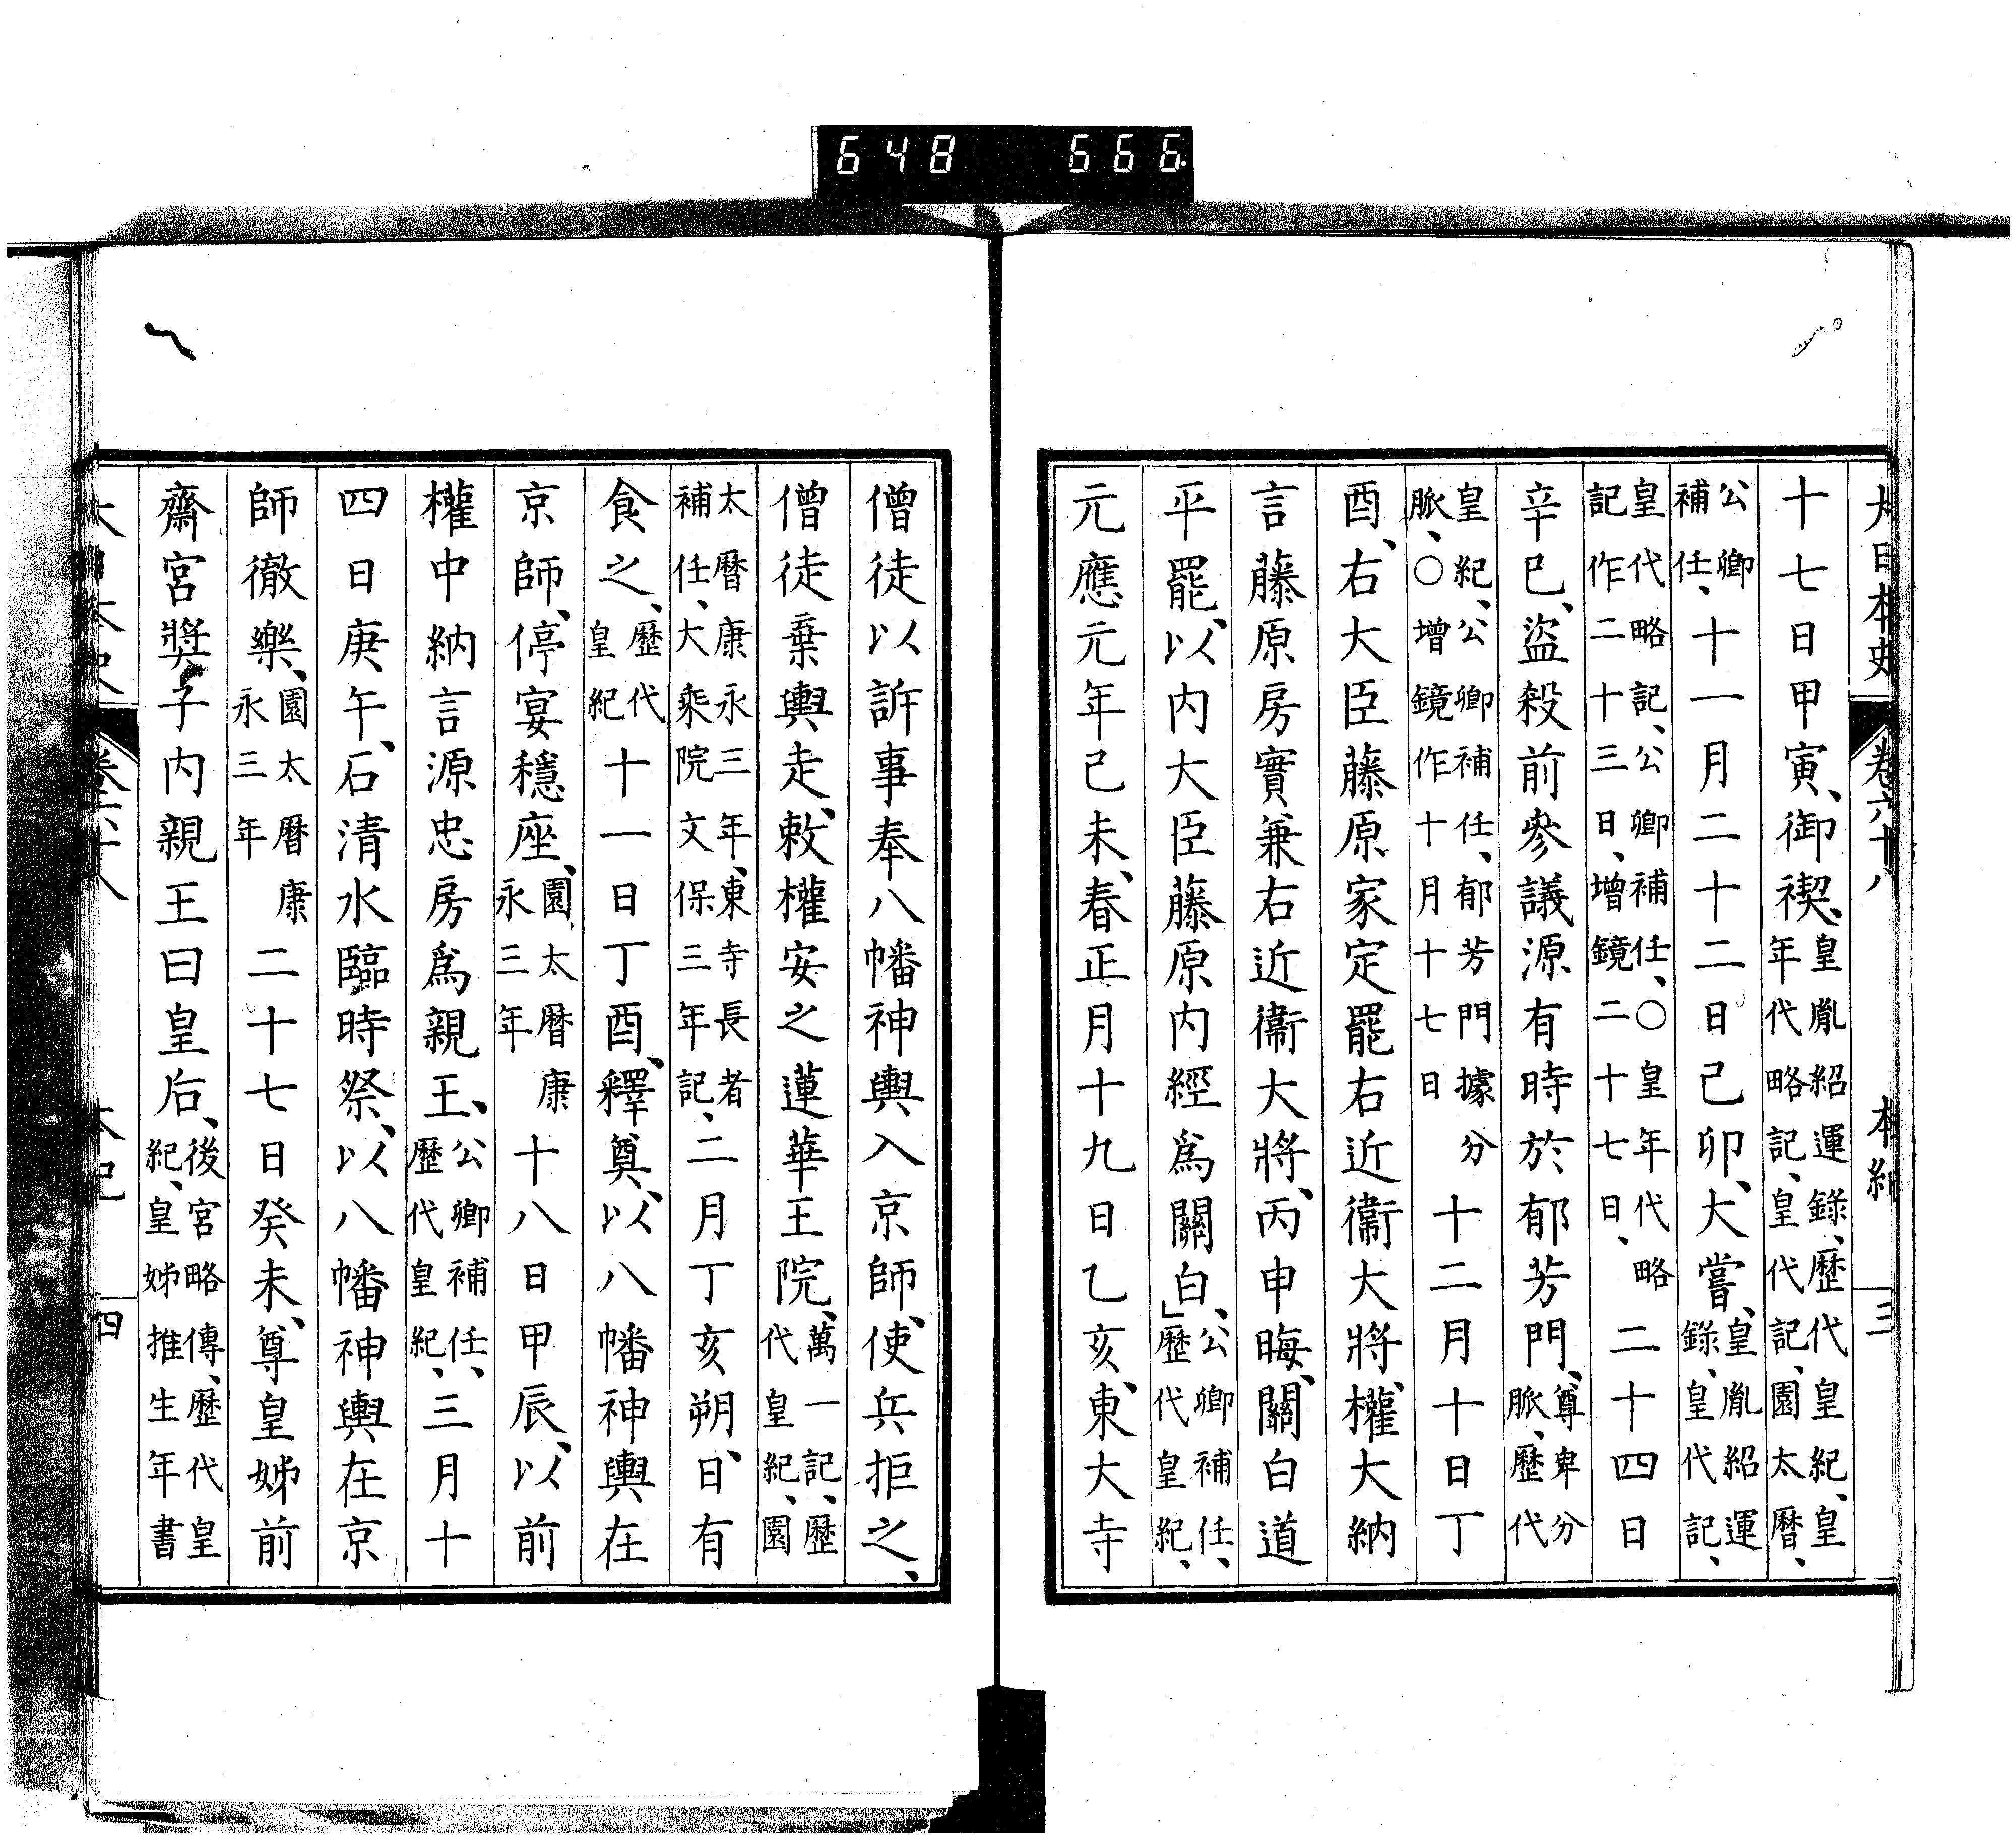 648 666
大日本史 卷六十八 本紀 三
十七日甲寅、御禊、皇胤紹運錄、歷代皇紀、皇年代略記、皇代記、園太曆、
公卿補任、十一月二十二日己卯、大嘗、皇胤紹運錄、皇代記、
皇代略記、公卿補任、○皇年代略記作二十三日、增鏡二十七日、二十四日
辛巳、盜殺前參議源有時於郁芳門、尊卑分脈、歷代
皇紀、公卿補任、郁芳門據分脈、○增鏡作十月十七日十二月十日丁
酉、右大臣藤原家定罷右近衞大將、權大納
言藤原房實兼右近衞大將、丙申晦、關白道
平罷、以內大臣藤原內經爲關白、」公卿補任、歷代皇紀、
元應元年己未、春正月十九日乙亥、東大寺
僧徒以訴事奉八幡神輿入京師、使兵拒之、
僧徒棄輿走、敕權安之蓮華王院、萬一記、歷代皇紀、園
太曆康永三年、東寺長者補任、大乘院文保三年記、二月丁亥朔、日有
食之、歷代皇紀十一日丁酉、釋奠、以八幡神輿在
京師、停宴穩座、園太曆康永三年十八日甲辰、以前
權中納言源忠房爲親王、公卿補任、歷代皇紀、三月十
四日庚午、石清水臨時祭、以八幡神輿在京
師徹樂、園太曆康永三年二十七日癸未、尊皇姊前
齋宮奬子內親王曰皇后、後宮略傳、歷代皇紀、皇姊推生年書
大日本史 卷六十八 本紀 四